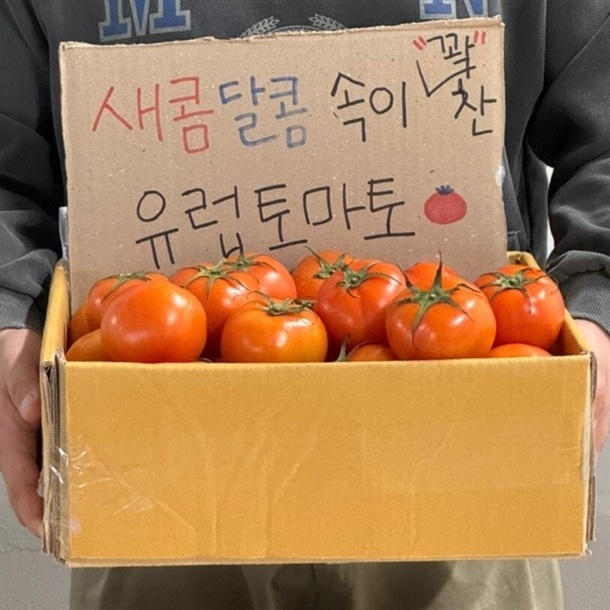 M N
새콤달콤 속이 "꽉" 찬
유럽토마토